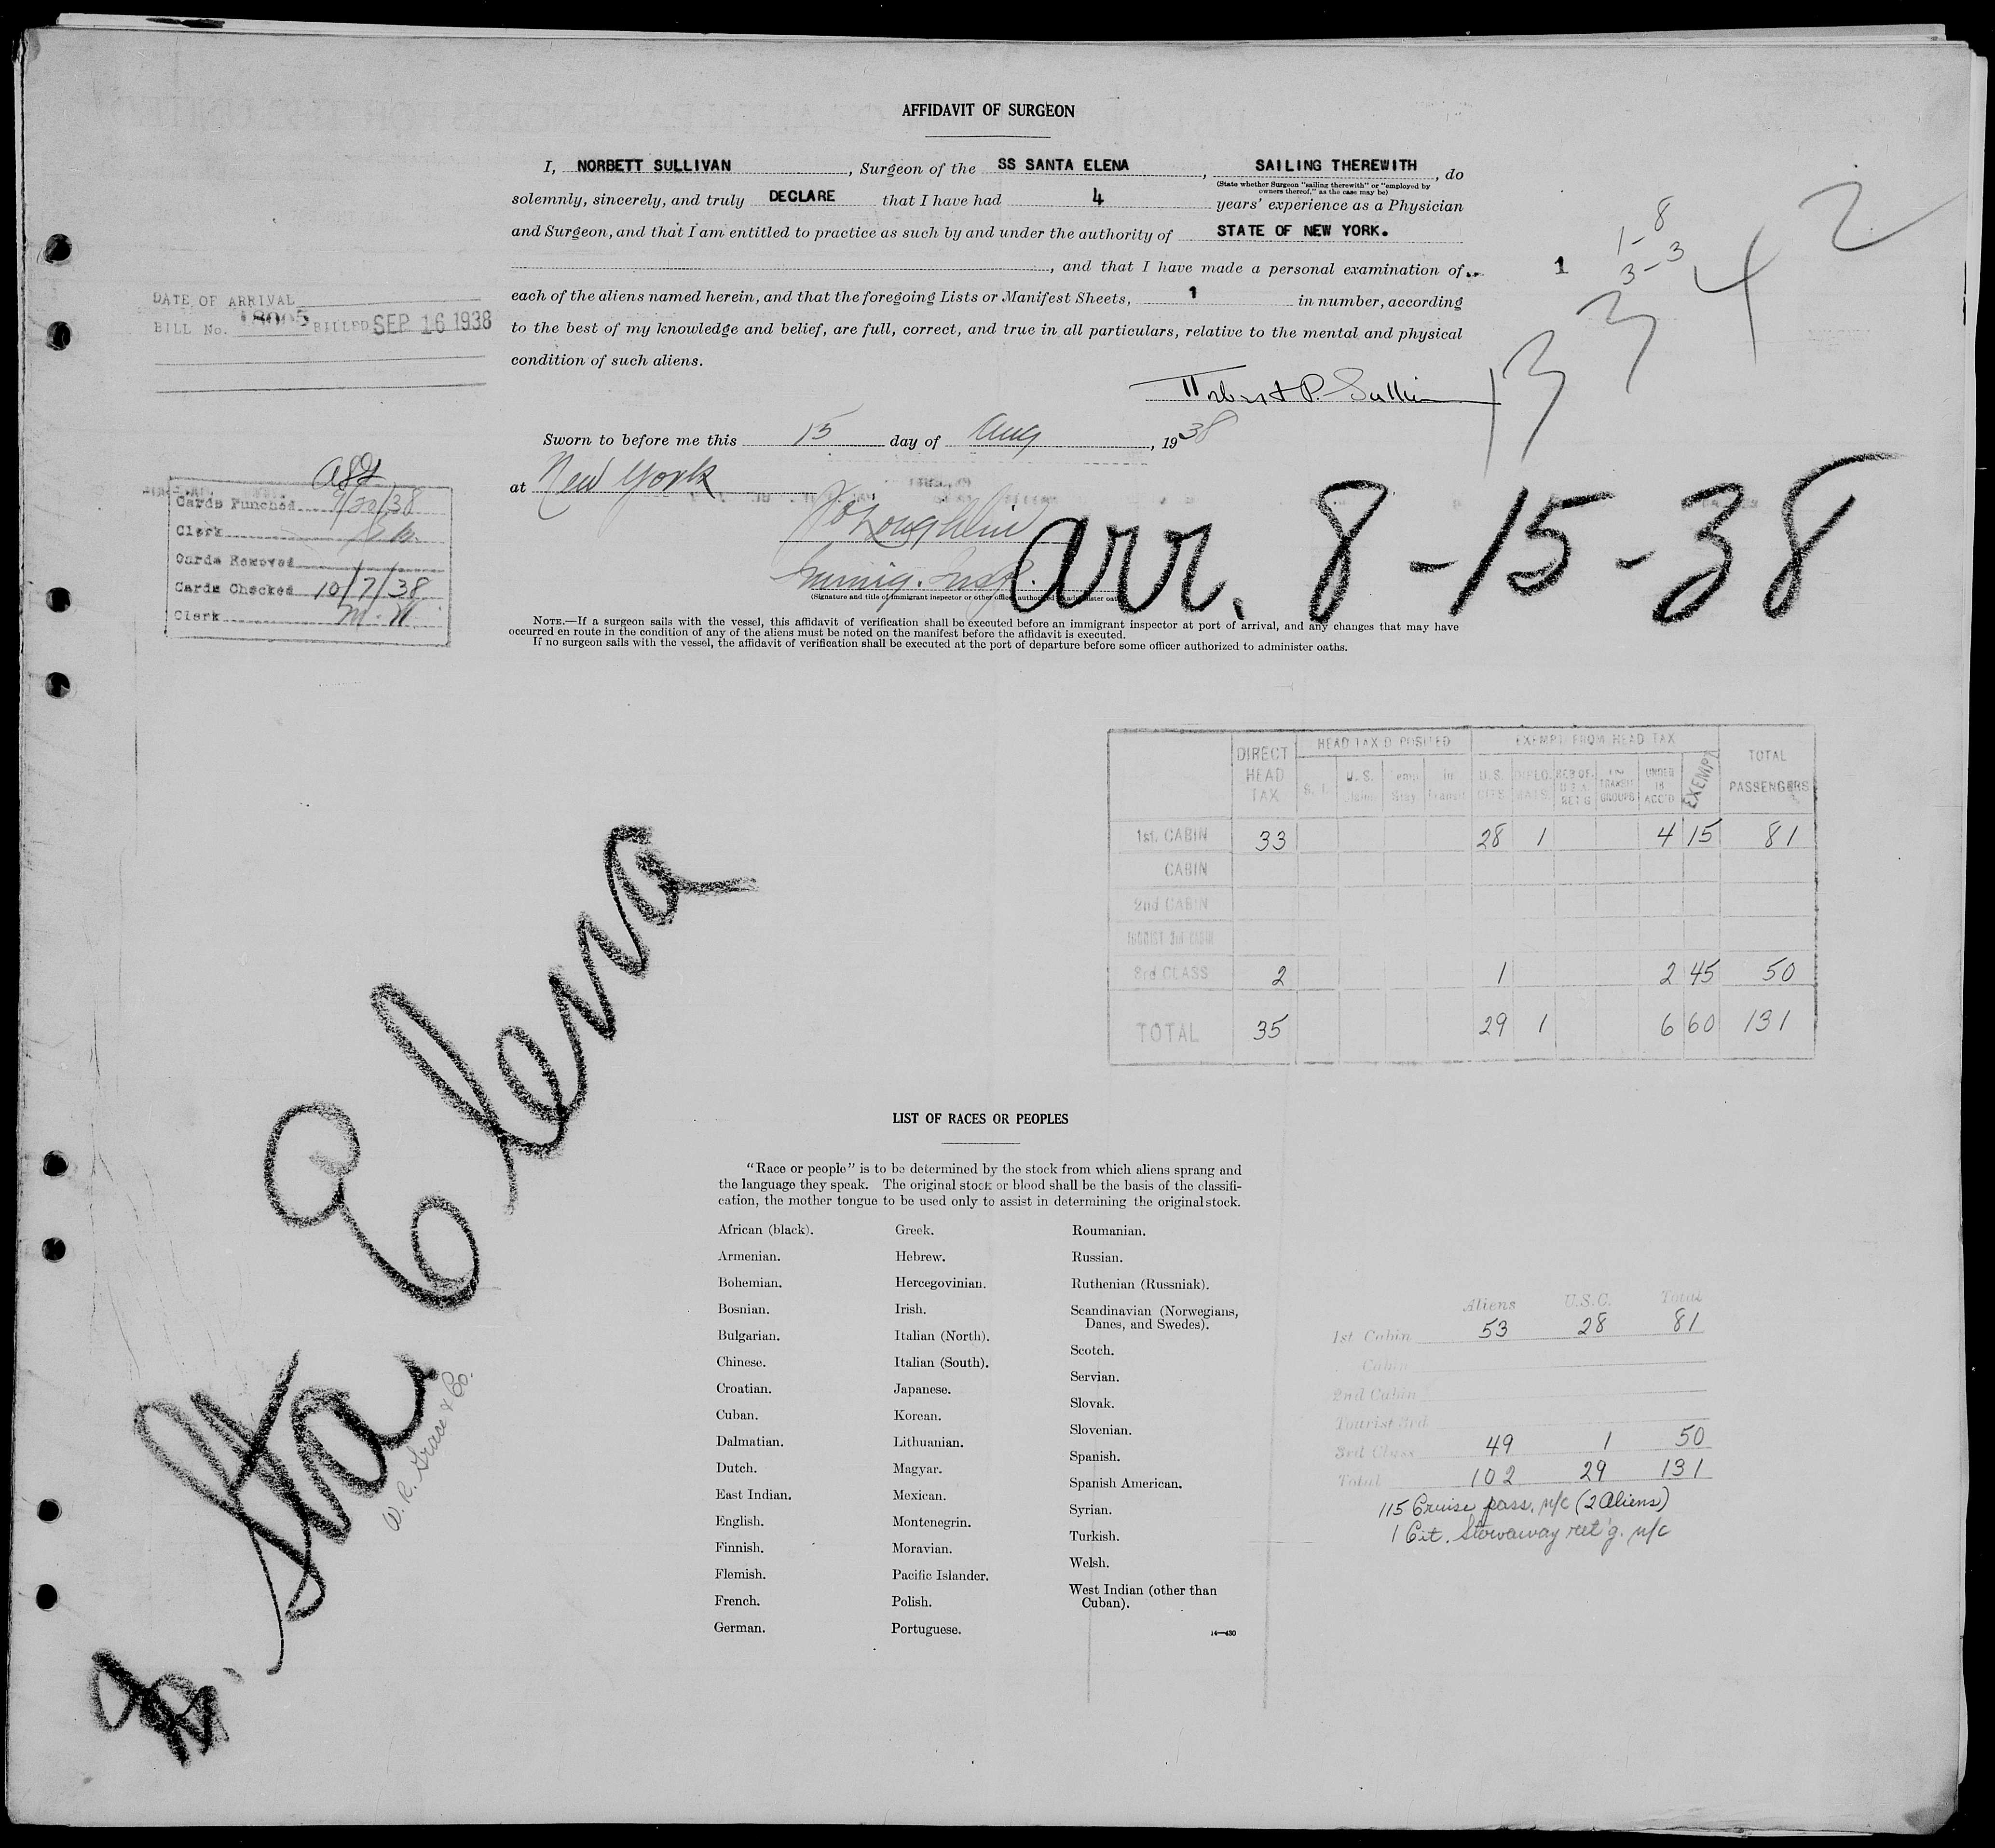 AFFIDAVIT OF SURGEON
I, NORBETT SULLIVAN, Surgeon of the SS SANTA ELENA, SAILING THEREWITH, do
(State whether Surgeon "sailing therewith" or "employed by owners thereof," as the case may be)
solemnly, sincerely, and truly DECLARE that I have had 4 years' experience as a Physician
and Surgeon, and that I am entitled to practice as such by and under the authority of STATE OF NEW YORK.
, and that I have made a personal examination of
each of the aliens named herein, and that the foregoing Lists or Manifest Sheets, 1 in number, according
to the best of my knowledge and belief, are full, correct, and true in all particulars, relative to the mental and physical
condition of such aliens.
1
1-8
3-3
DATE OF ARRIVAL
BILL No. 18005 BILLED SEP 16 1938
Norbert P. Sullivan
13342
Sworn to before me this 15 day of Aug, 1938
at New York
Immig. Insp.
(Signature and title of immigrant inspector or other officer authorized to administer oaths)
arr. 8-15-38
Cards Punched 9/20/38
Clerk
Cards Removed
Cards Checked 10/7/38
Clerk M.W.
NOTE.—If a surgeon sails with the vessel, this affidavit of verification shall be executed before an immigrant inspector at port of arrival, and any changes that may have
occurred en route in the condition of any of the aliens must be noted on the manifest before the affidavit is executed.
If no surgeon sails with the vessel, the affidavit of verification shall be executed at the port of departure before some officer authorized to administer oaths.
DIRECT HEAD TAX HEAD TAX DEPOSITED EXEMPT FROM HEAD TAX TOTAL PASSENGERS
S. I. U.S. Temp Stay In Transit U.S. CITS. DIPLOMATS. RES OF U.S.A. RET'G IN TRANSIT GROUPS UNDER 16 ACC'D EXEMPT
1st. CABIN 33 28 1 4 15 81
CABIN
2nd CABIN
TOURIST 3rd CABIN
3rd CLASS 2 1 2 45 50
TOTAL 35 29 1 6 60 131
Sta Elena
W. R. Grace & Co.
LIST OF RACES OR PEOPLES
"Race or people" is to be determined by the stock from which aliens sprang and
the language they speak. The original stock or blood shall be the basis of the classifi-
cation, the mother tongue to be used only to assist in determining the original stock.
African (black).
Armenian.
Bohemian.
Bosnian.
Bulgarian.
Chinese.
Croatian.
Cuban.
Dalmatian.
Dutch.
East Indian.
English.
Finnish.
Flemish.
French.
German.
Greek.
Hebrew.
Hercegovinian.
Irish.
Italian (North).
Italian (South).
Japanese.
Korean.
Lithuanian.
Magyar.
Mexican.
Montenegrin.
Moravian.
Pacific Islander.
Polish.
Portuguese.
Roumanian.
Russian.
Ruthenian (Russniak).
Scandinavian (Norwegians,
Danes, and Swedes).
Scotch.
Servian.
Slovak.
Slovenian.
Spanish.
Spanish American.
Syrian.
Turkish.
Welsh.
West Indian (other than
Cuban).
14—430
Aliens U.S.C. Total
1st Cabin 53 28 81
Cabin
2nd Cabin
Tourist 3rd
3rd Class 49 1 50
Total 102 29 131
115 Cruise pass. n/c (2 Aliens)
1 Cit. Stowaway ret'g. n/c